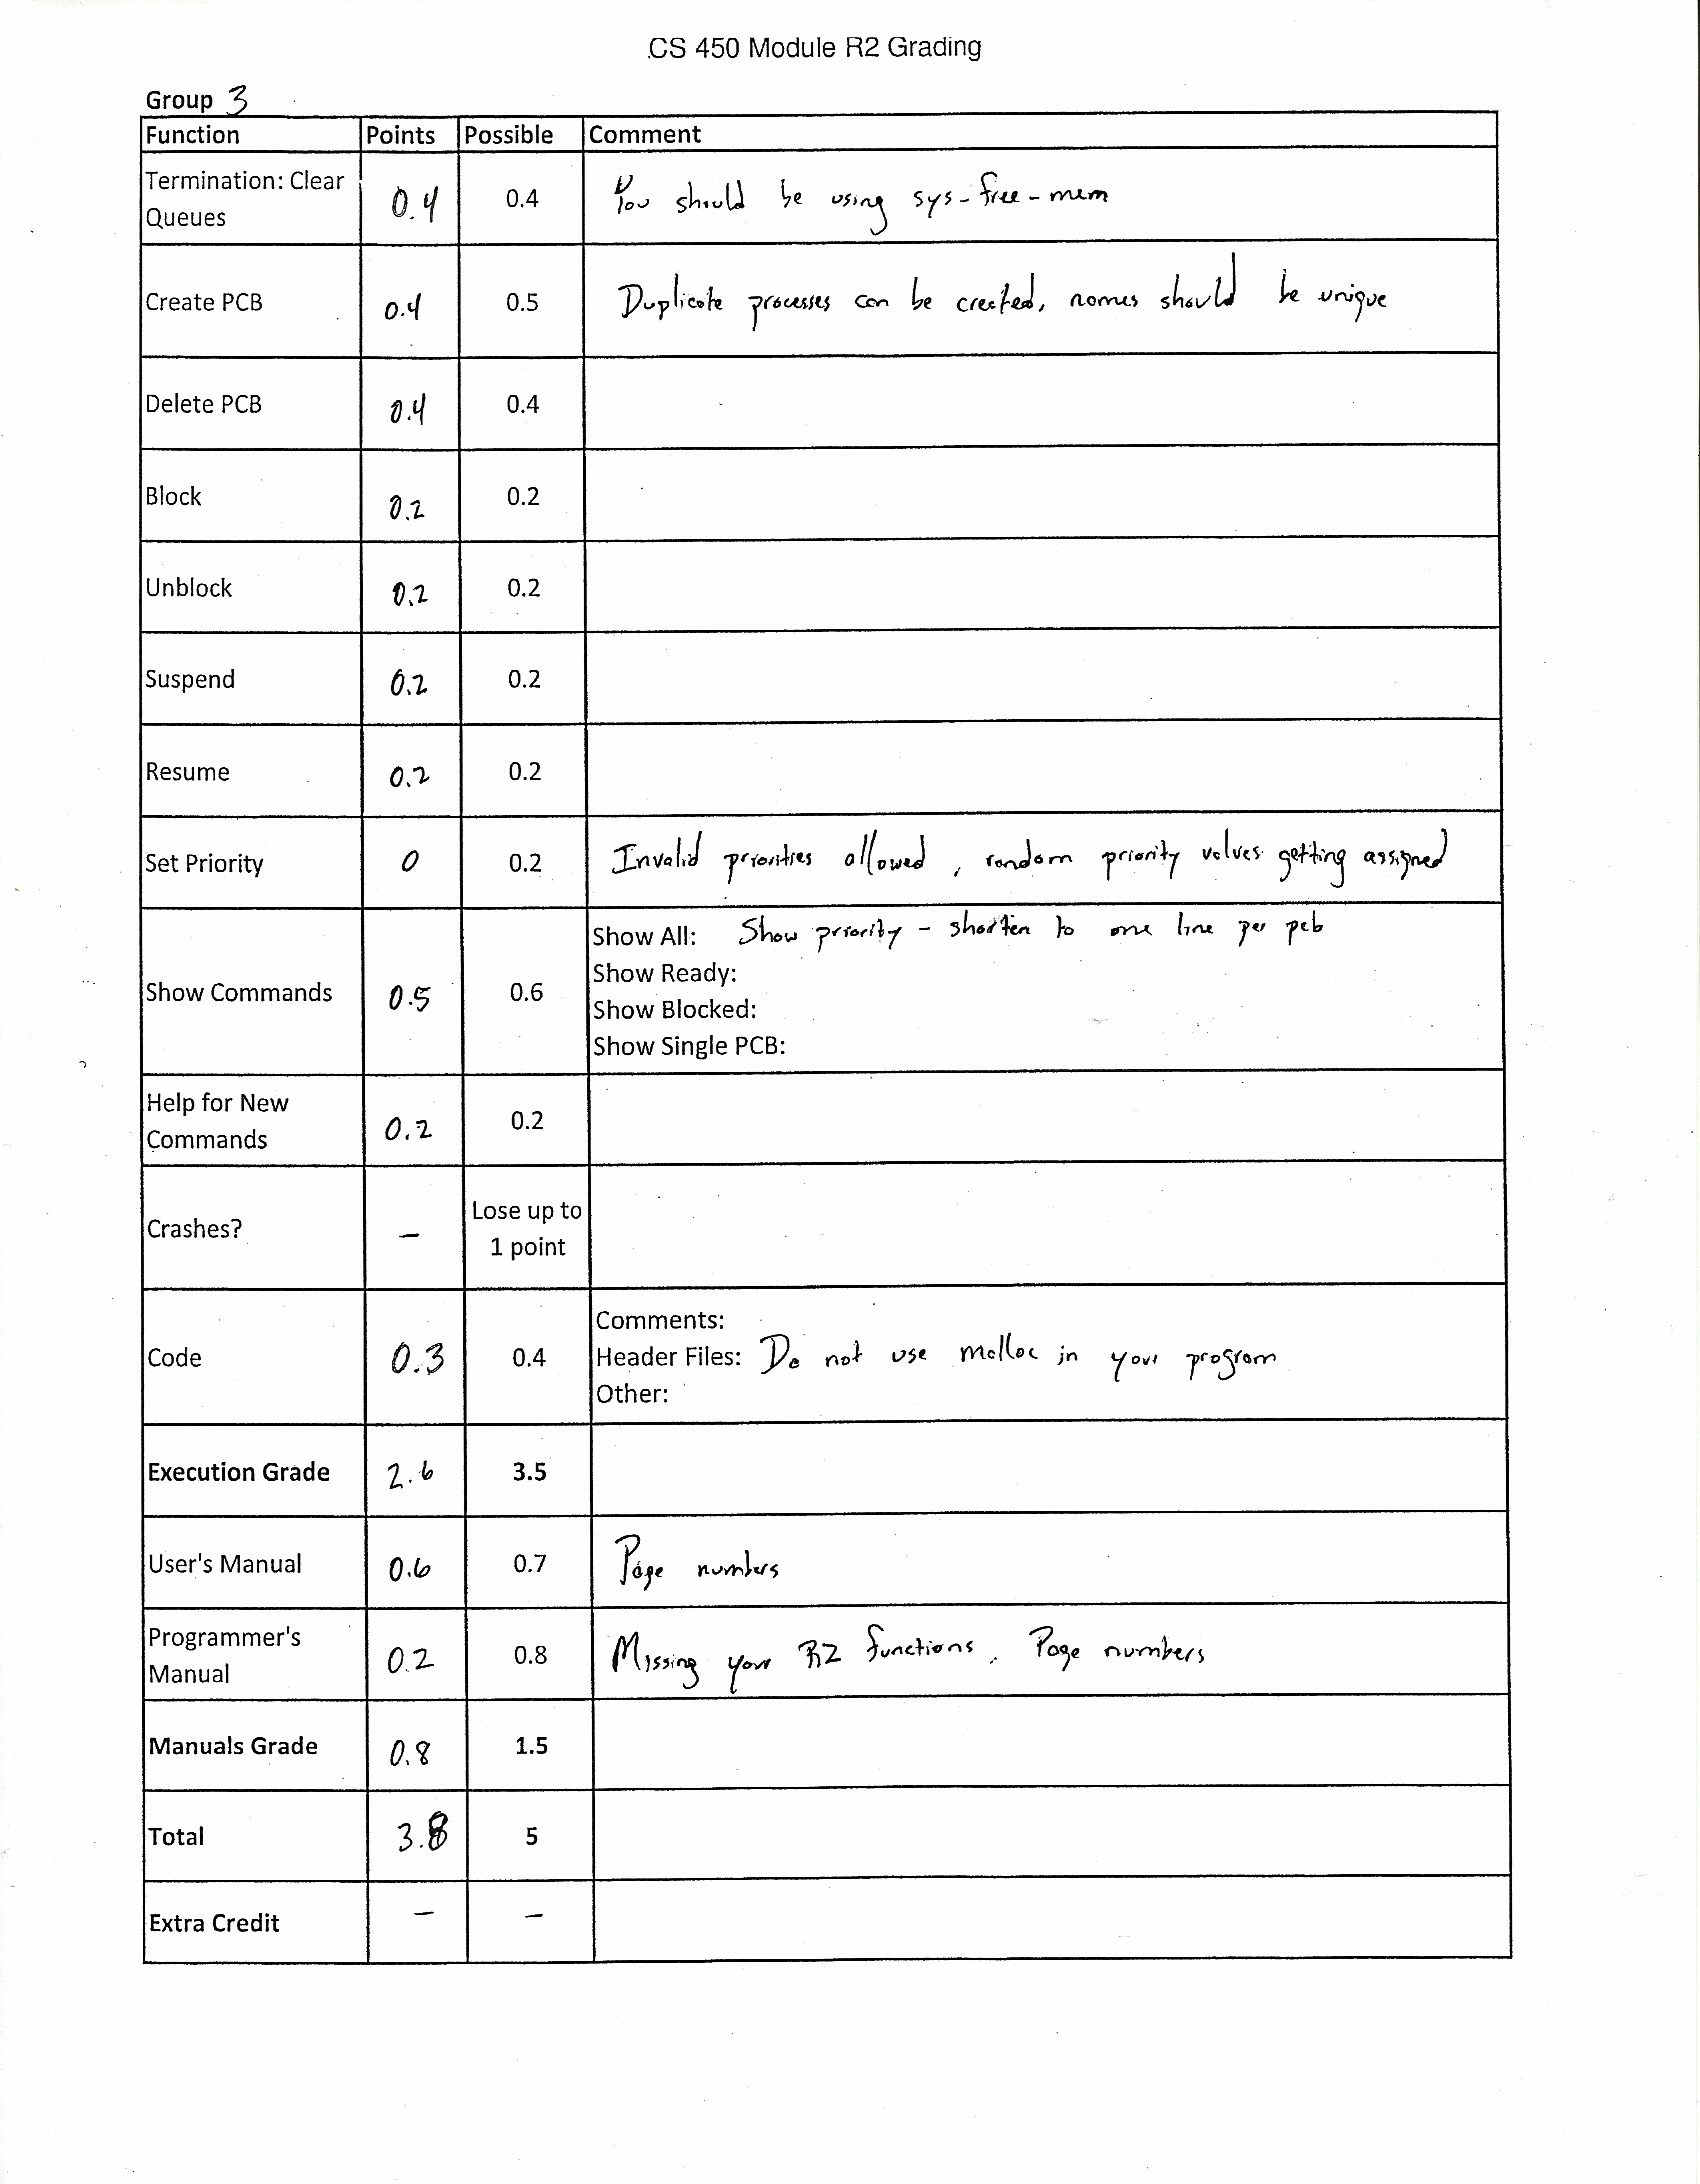 CS 450 Module R2 Grading
Group 3
Function Points Possible Comment
Termination: Clear Queues 0.4 0.4 You should be using sys-free-mem
Create PCB 0.4 0.5 Duplicate processes can be created, names should be unique
Delete PCB 0.4 0.4
Block 0.2 0.2
Unblock 0.2 0.2
Suspend 0.2 0.2
Resume 0.2 0.2
Set Priority 0 0.2 Invalid priorities allowed, random priority values getting assigned
Show Commands 0.5 0.6 Show All: Show priority - shorten to one line per pcb
Show Ready:
Show Blocked:
Show Single PCB:
Help for New Commands 0.2 0.2
Crashes? - Lose up to 1 point
Code 0.3 0.4 Comments:
Header Files: Do not use malloc in your program
Other:
Execution Grade 2.6 3.5
User's Manual 0.6 0.7 Page numbers
Programmer's Manual 0.2 0.8 Missing your R2 functions. Page numbers
Manuals Grade 0.8 1.5
Total 3.8 5
Extra Credit - -